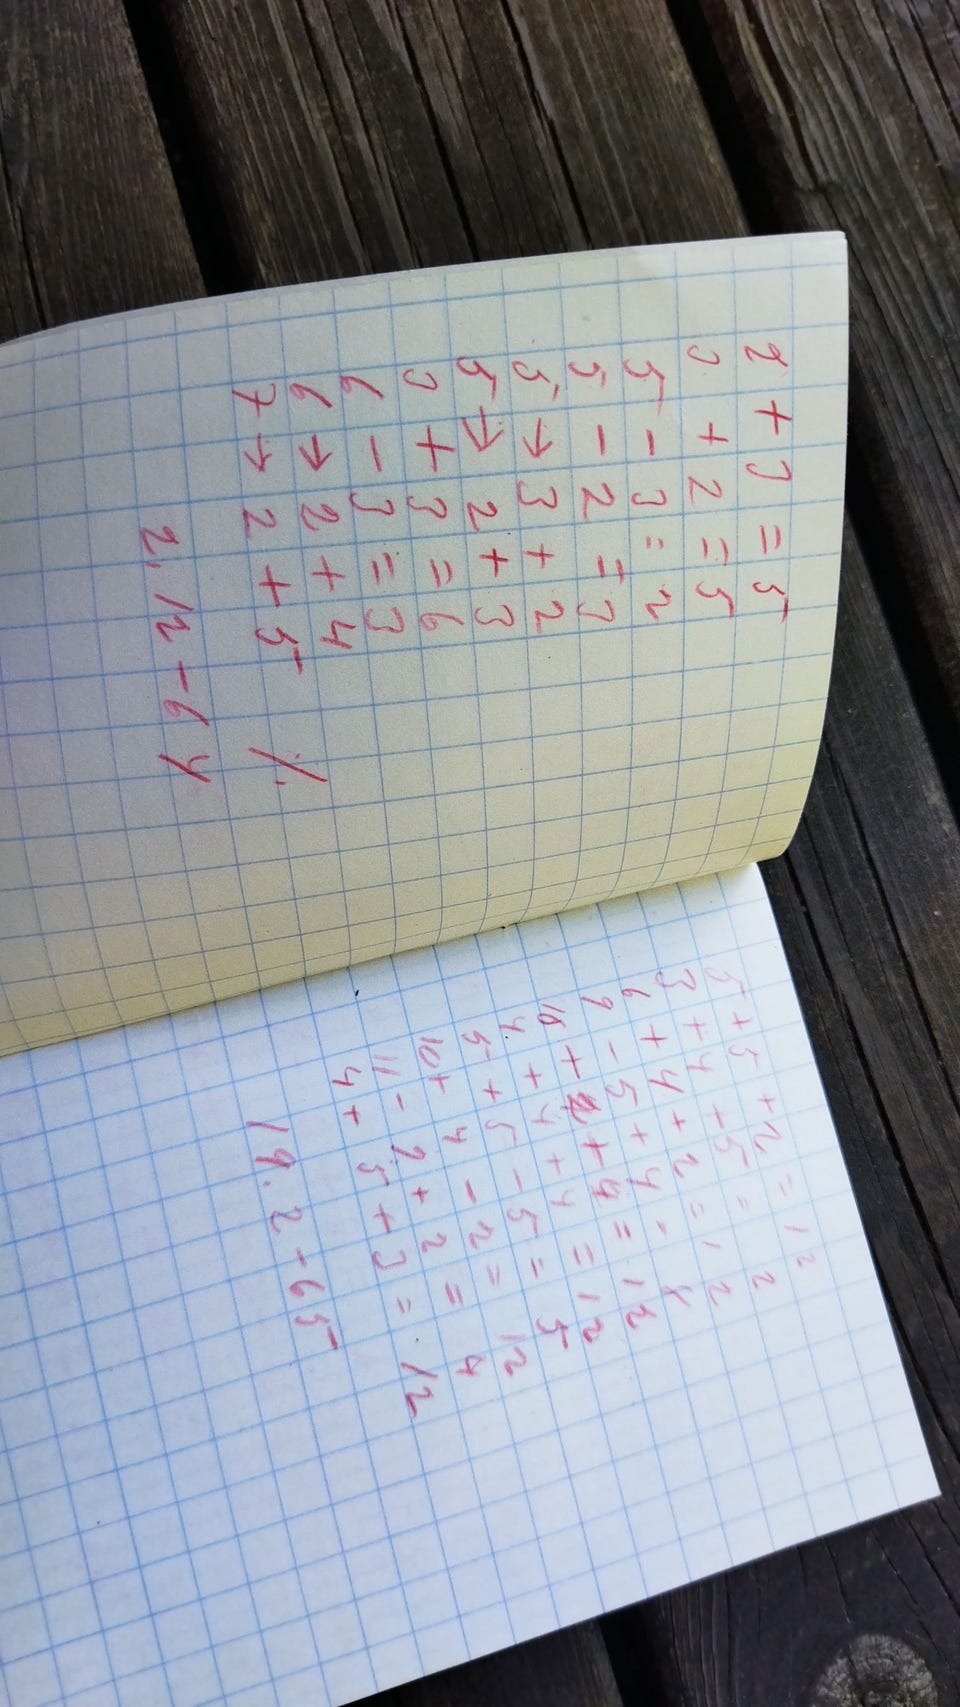 2 + 3 = 5
3 + 2 = 5
5 - 3 = 2
5 - 2 = 3
5 → 3 + 2
5 → 2 + 3
3 + 3 = 6
6 - 3 = 3
6 → 2 + 4
7 → 2 + 5 ·/.
2. 12 - 64
5 + 5 + 2 = 12
3 + 4 + 5 = 2
6 + 4 + 2 = 12
9 - 5 + 4 - 4
10 + 2 + 4 = 12
4 + 4 + 4 = 12
5 + 5 - 5 = 5
10 + 4 - 2 = 12
11 - 9 + 2 = 4
4 + 5 + 3 = 12
19. 2 - 65